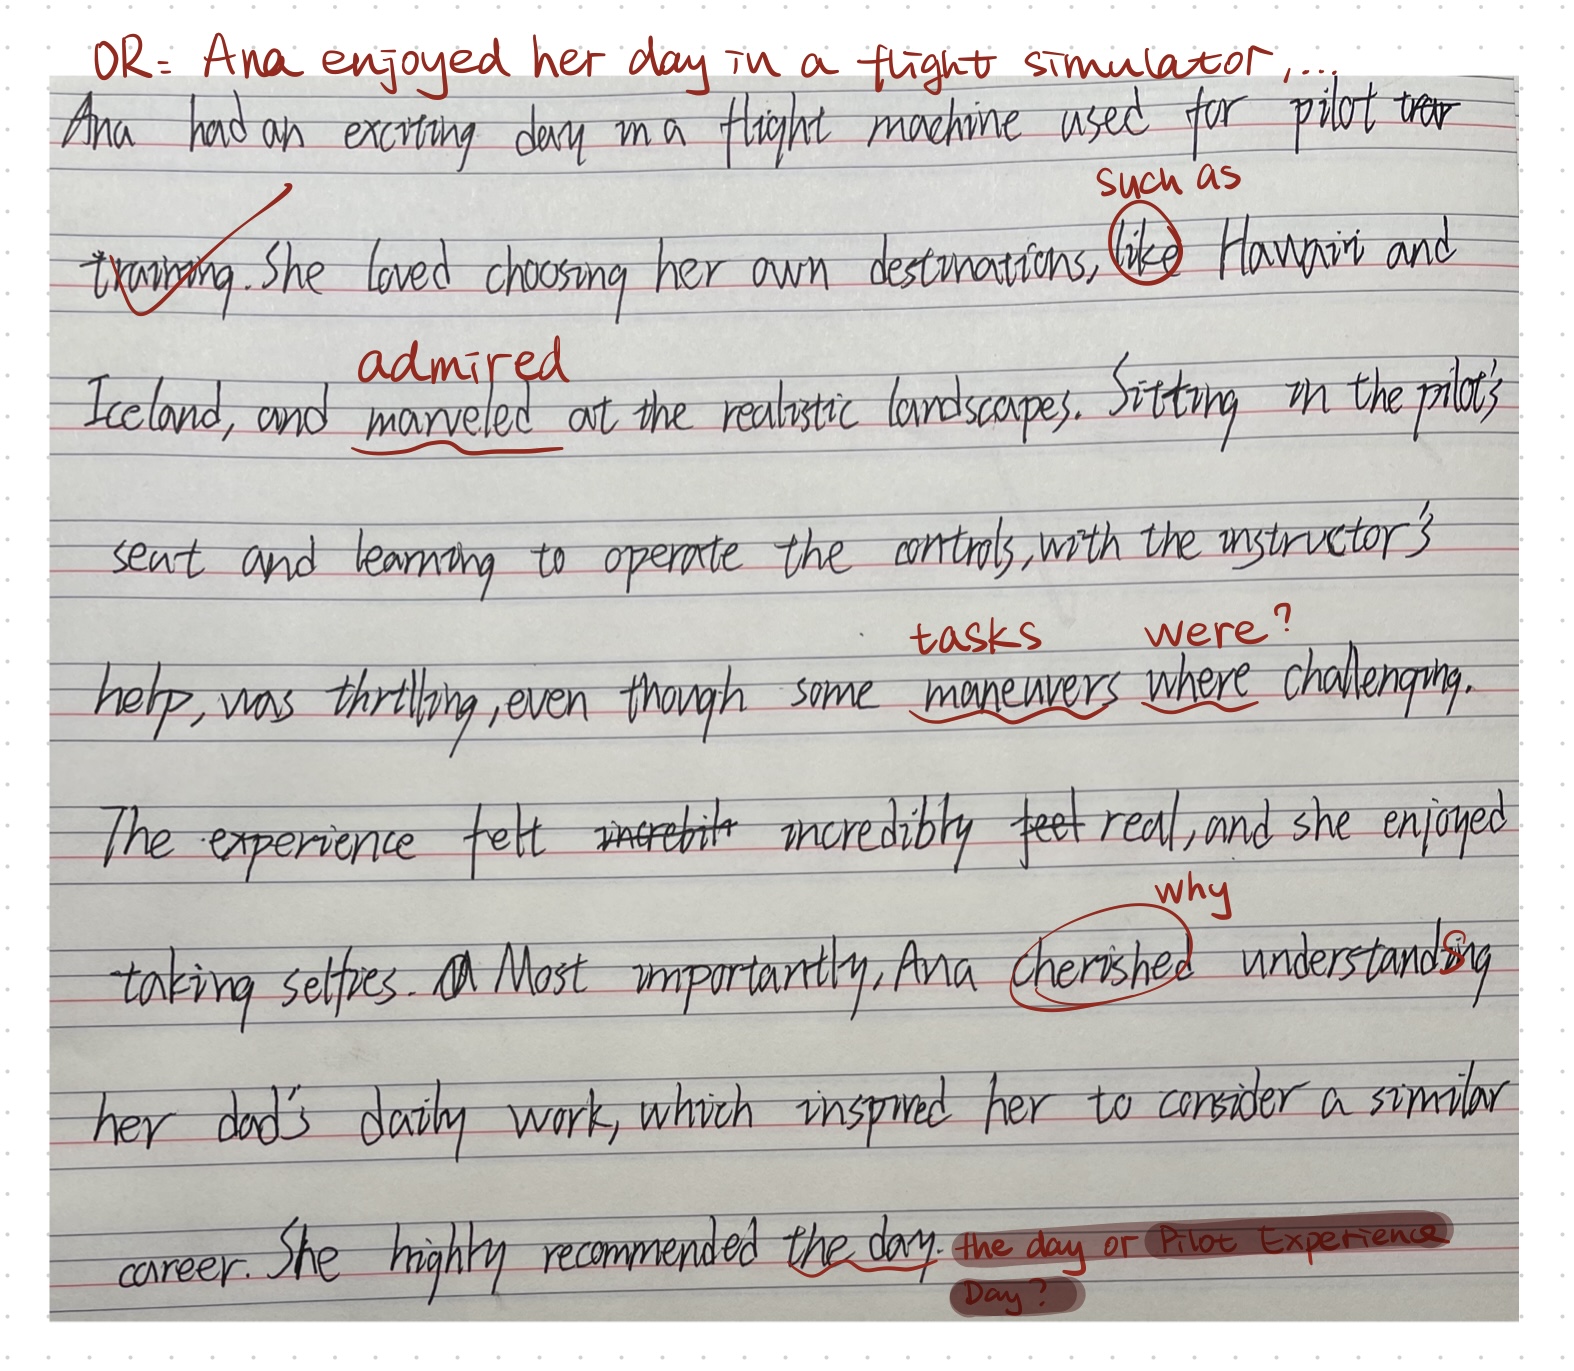 OR= Ana enjoyed her day in a flight simulator,...
Ana had an exciting day in a flight machine used for pilot
such as
training. She loved choosing her own destinations, like Hawairi and
admired
Iceland, and marveled at the realistic landscapes. Sitting in the pilot's
seat and learning to operate the controls, with the instructor's
tasks were?
help, was thrilling, even though some maneuvers where challenging.
The experience felt increbilt incredibly feel real, and she enjoyed
why
taking selfies. Most importantly, Ana cherished understanding
her dad's daily work, which inspired her to consider a similar
career. She highly recommended the day. the day or Pilot Experience
Day?